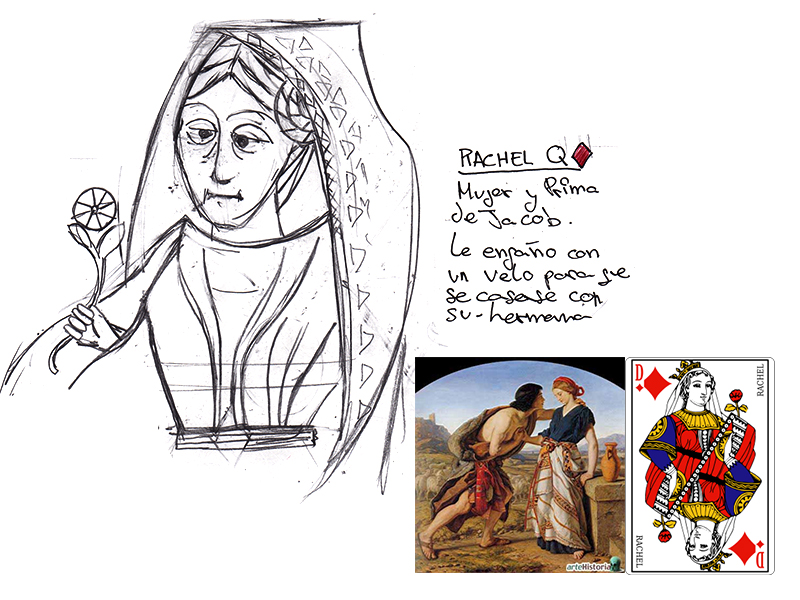 RACHEL Q
Mujer y Prima
de Jacob.
Le engaño con
un velo para que
se casase con
su-hermana
arteHistoria
D
RACHEL
RACHEL
D